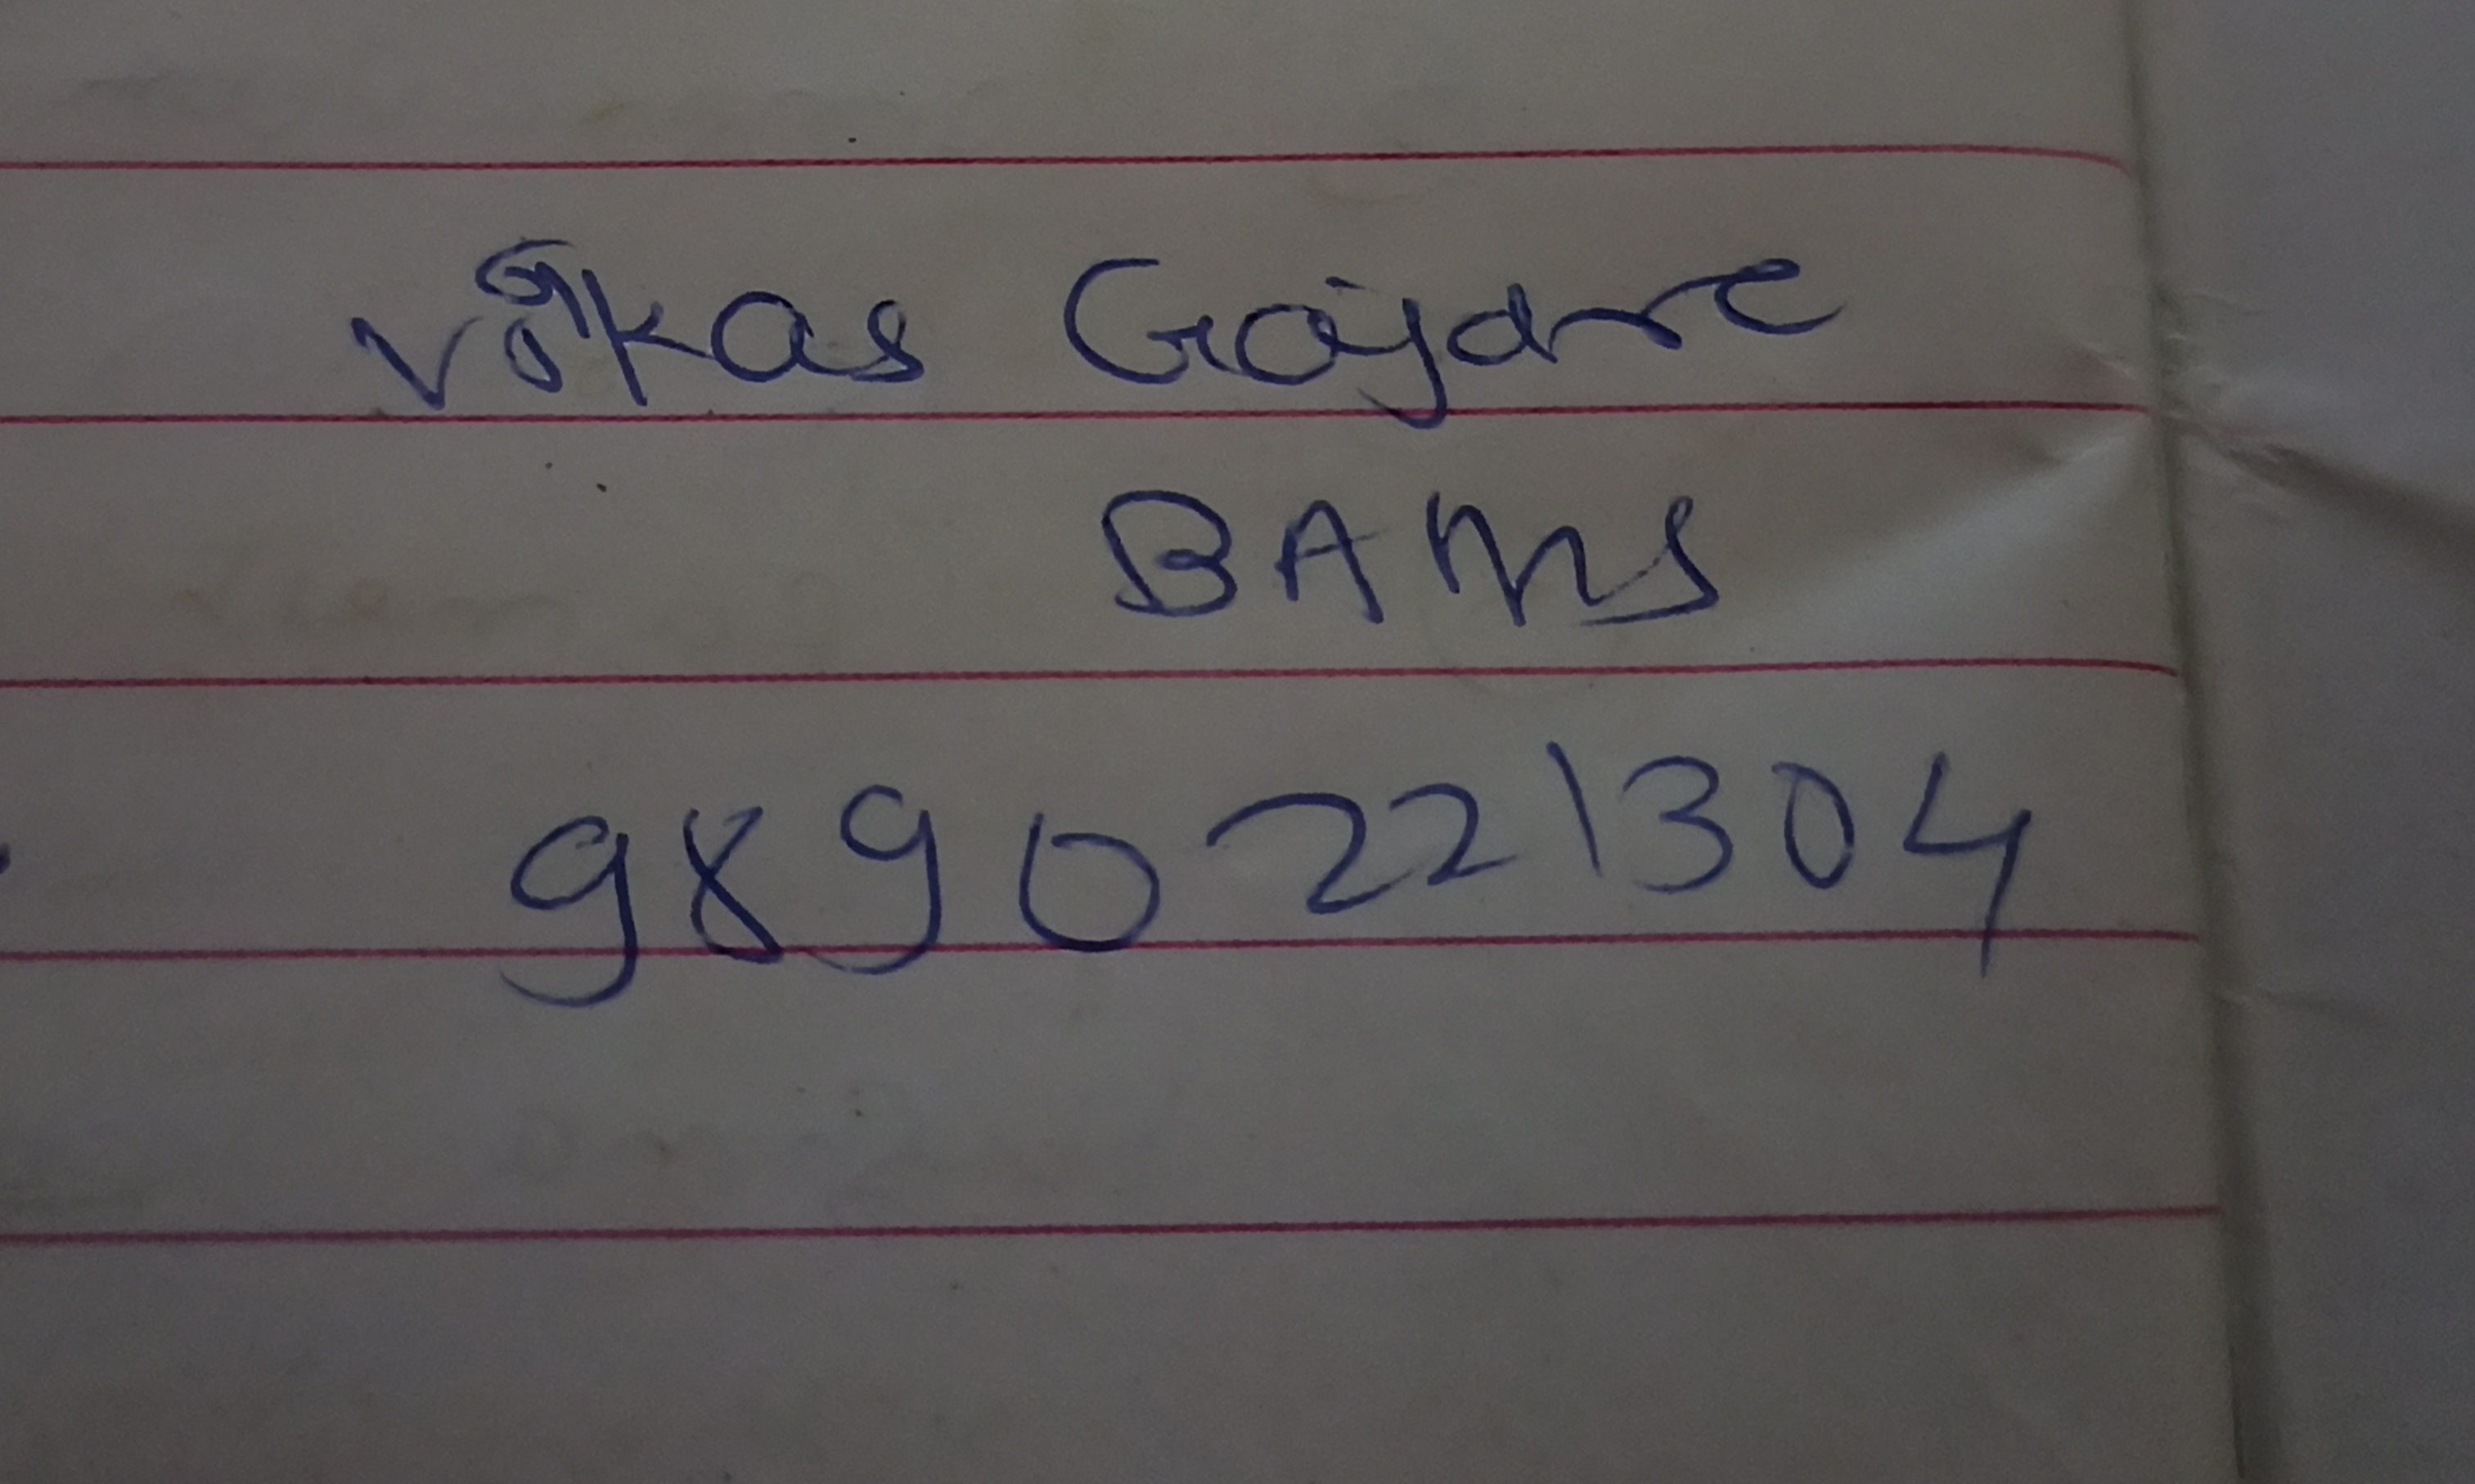 Vikas Gajare
BAMS
9890221304